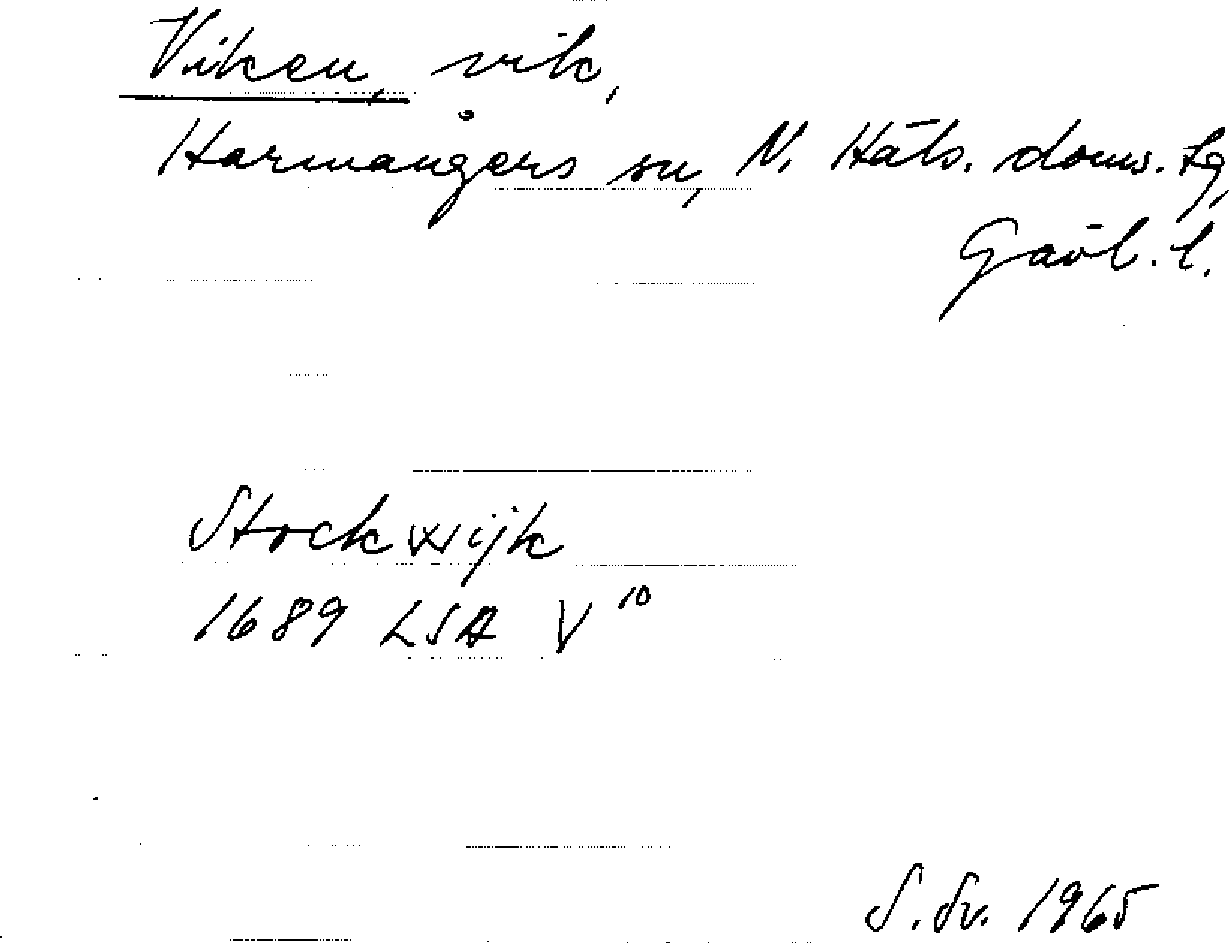 Viken, vik,
Harmångers sn, N. Häls. doms. tg,
Gävl. l.
Stockwijk
1689 LSA V 10
S. Sv. 1965